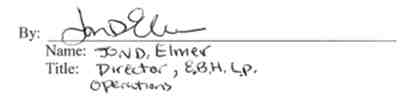 By: Jon D Elmer
Name: JON D. Elmer
Title: Director, E.B.H. L.P.
Operations